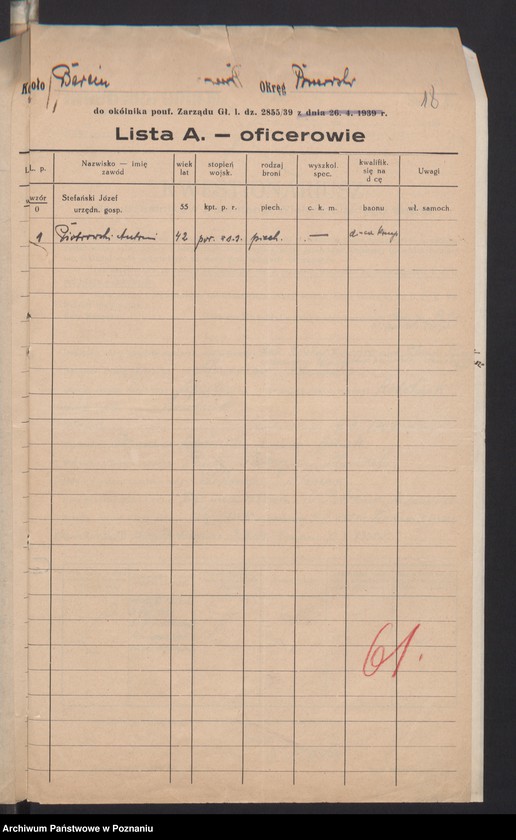 Koło Barcin Okręg Pomorski
18
do okólnika pouf. Zarządu Gł. l. dz. 2855/39 z dnia 26. 4. 1939 r.
Lista A. — oficerowie
L. p. Nazwisko — imię zawód wiek lat stopień wojsk. rodzaj broni wyszkol. spec. kwalifik. się na d cę Uwagi
wzór 0 Stefański Józef urzędn. gosp. 55 kpt. p. r. piech. c. k. m. baonu wł. samoch.
1 Piotrowski Antoni 42 por. piech. — d-ca komp
61.
Archiwum Państwowe w Poznaniu